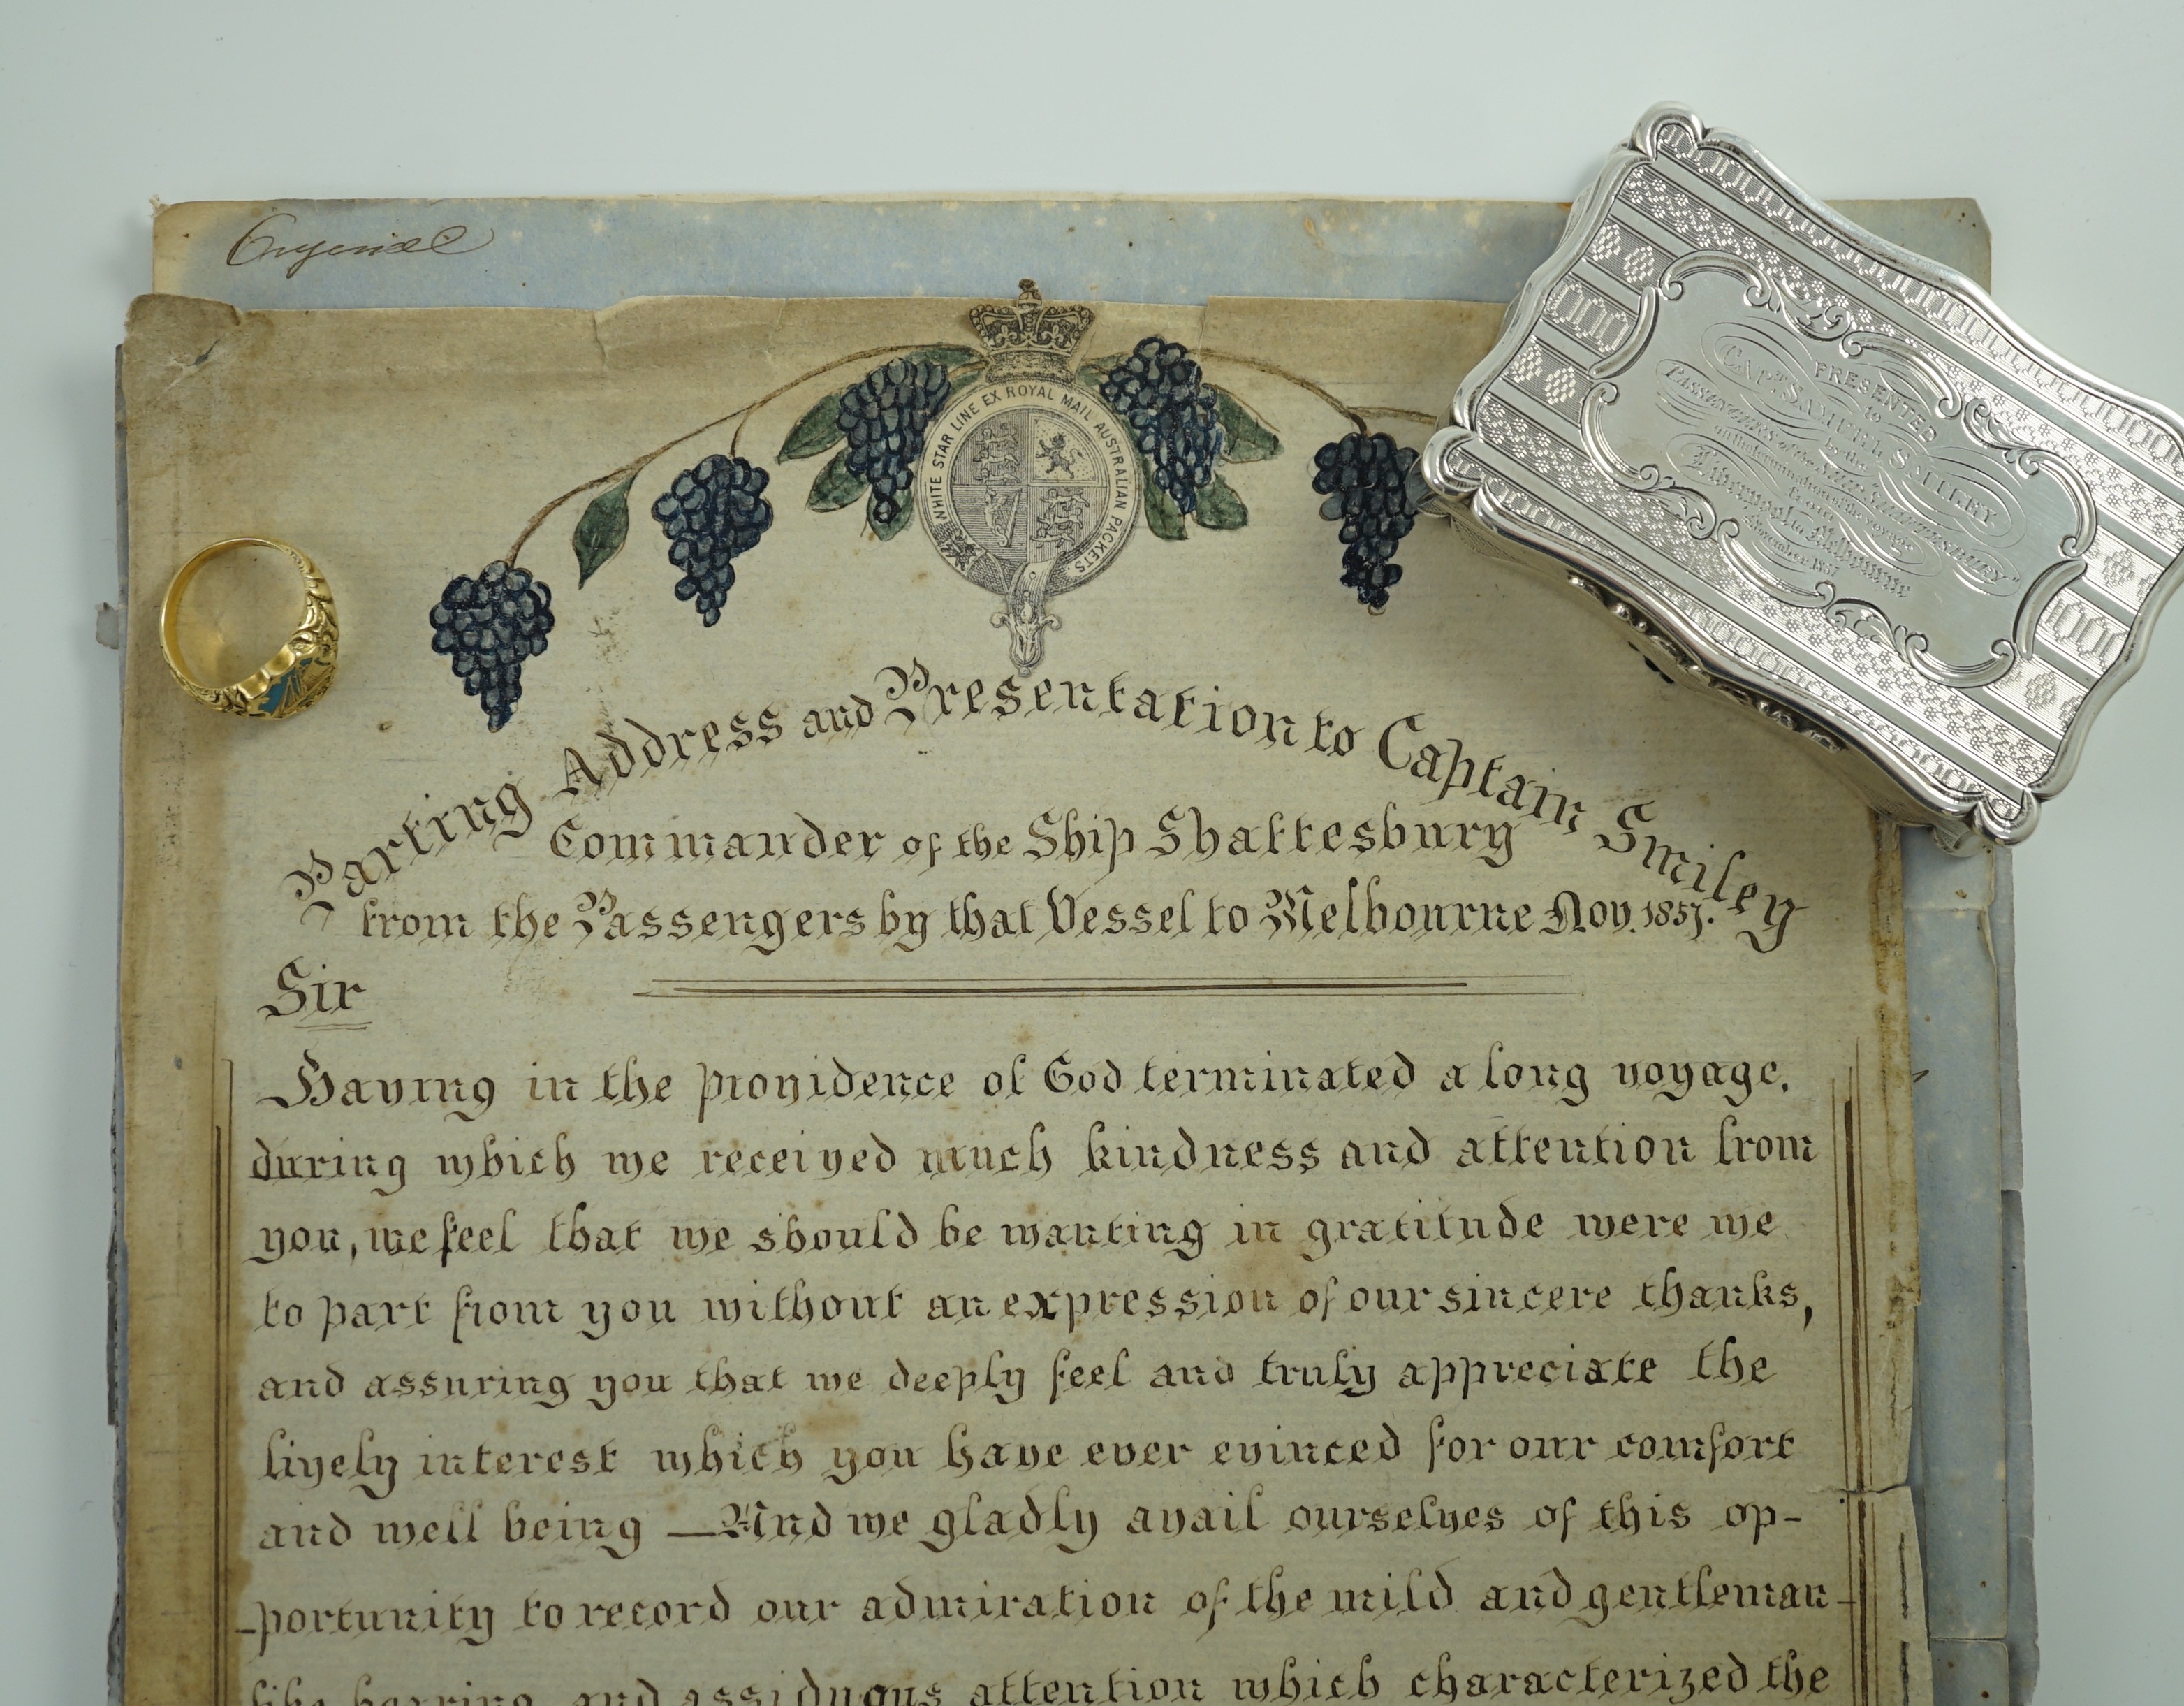 Orygenial
WHITE STAR LINE EX ROYAL MAIL AUSTRALIAN PACKETS.
PRESENTED
to
CAPT. SAMUEL SMILEY
by the
PASSENGERS of the Ship "SHAFTESBURY"
on the termination of the voyage
From
Liverpool to Melbourne
November 1857
Parting Address and Presentation to Captain Smiley
Commander of the Ship Shaftesbury
from the Passengers by that Vessel to Melbourne Nov. 1857.
Sir
Having in the providence of God terminated a long voyage,
during which we received much kindness and attention from
you, we feel that we should be wanting in gratitude were we
to part from you without an expression of our sincere thanks,
and assuring you that we deeply feel and truly appreciate the
lively interest which you have ever evinced for our comfort
and well being — And we gladly avail ourselves of this op-
-portunity to record our admiration of the mild and gentleman-
like bearing and assiduous attention which characterized the